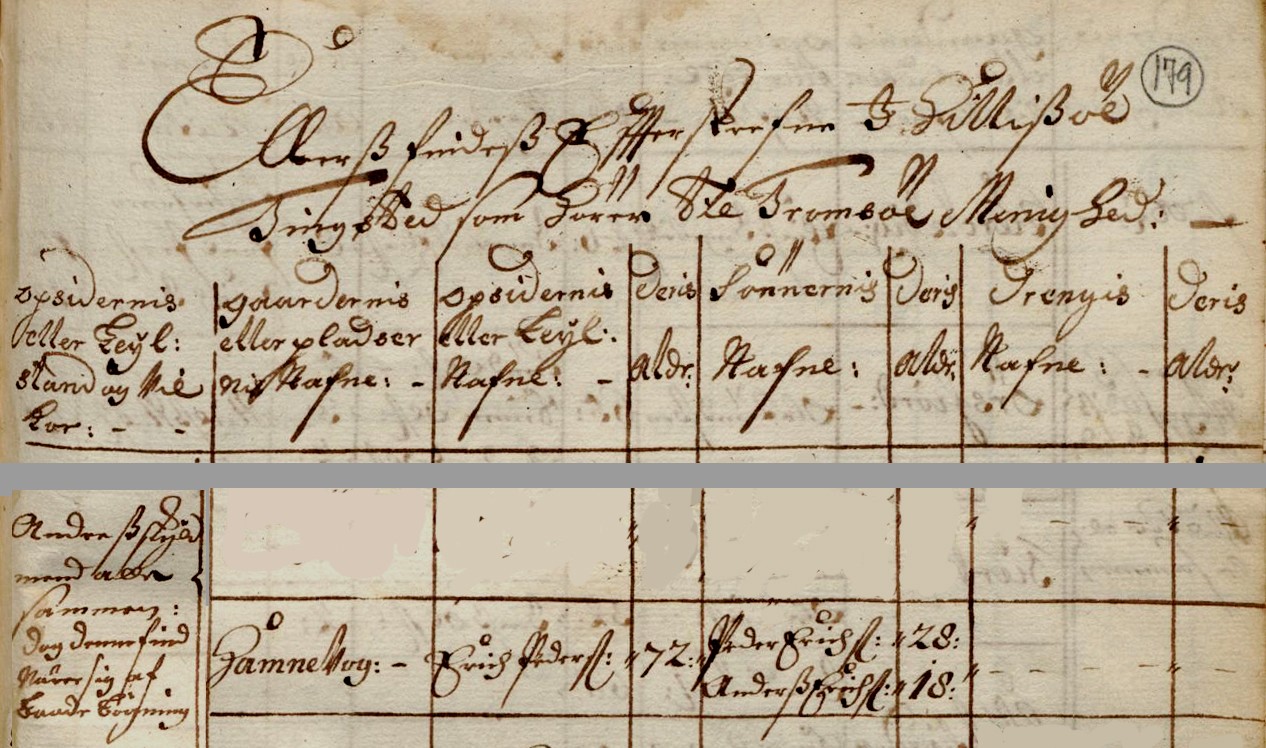 179
Ellerß findeß Effterskrefne I Hillißøe
Tingsted som Hører Til Tromsøe Menig-hed:
opsidernis
eller Leyl:
stand og Vil
kor: - -
gaardernis
eller pladser
nis Nafne: -
opsidernis
eller Leyl:
Nafne: -
deris
aldr:
Sønnernis
Nafne:
deris
aldr:
Drengis
Nafne: -
deris
aldr:
Andreß skyld
mend alle
sammen:
Dog denne find
Nærer sig af
Hamne Vog: -
Erich Pederß:
72:
Peder Erichß: 28:
Anderß Erichß: 18: